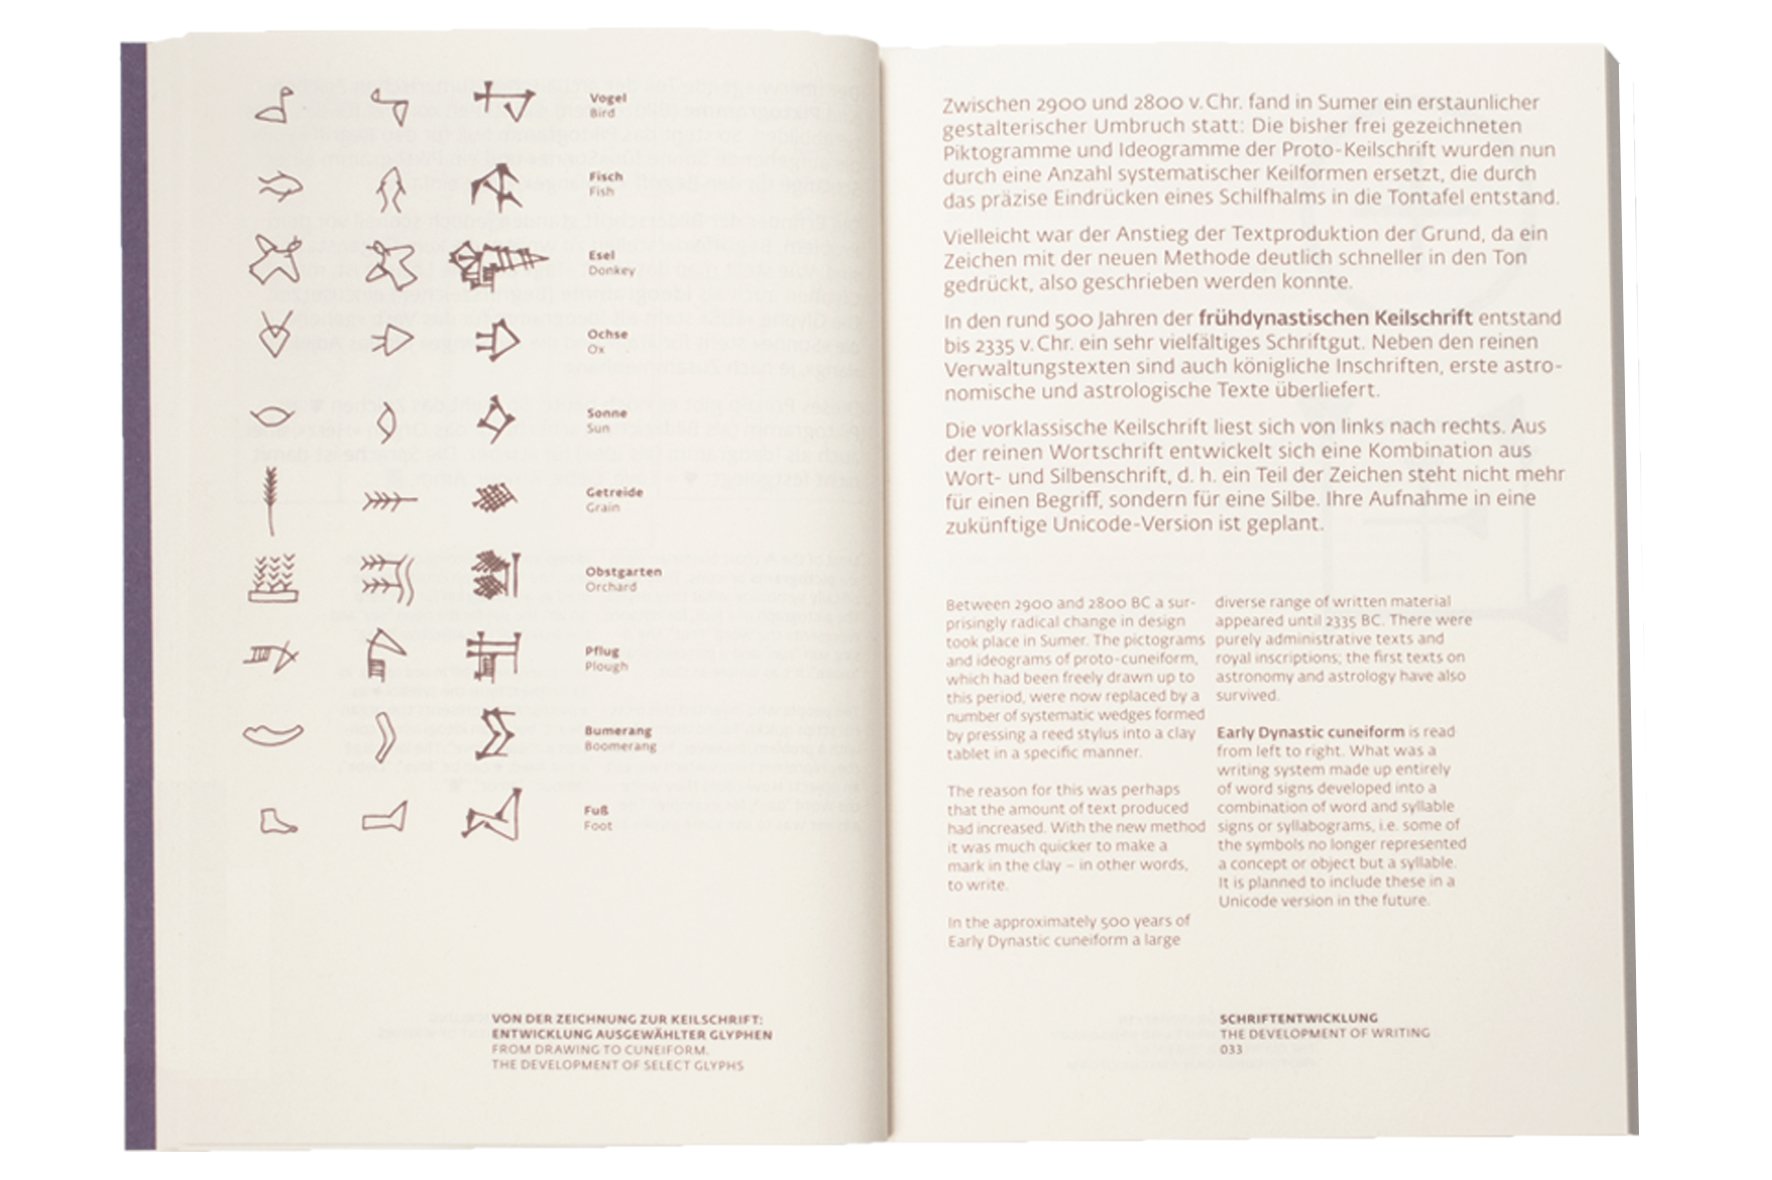 Vogel
Bird
Fisch
Fish
Esel
Donkey
Ochse
Ox
Sonne
Sun
Getreide
Grain
Obstgarten
Orchard
Pflug
Plough
Bumerang
Boomerang
Fuß
Foot
VON DER ZEICHNUNG ZUR KEILSCHRIFT:
ENTWICKLUNG AUSGEWÄHLTER GLYPHEN
FROM DRAWING TO CUNEIFORM.
THE DEVELOPMENT OF SELECT GLYPHS
Zwischen 2900 und 2800 v. Chr. fand in Sumer ein erstaunlicher
gestalterischer Umbruch statt: Die bisher frei gezeichneten
Piktogramme und Ideogramme der Proto-Keilschrift wurden nun
durch eine Anzahl systematischer Keilformen ersetzt, die durch
das präzise Eindrücken eines Schilfhalms in die Tontafel entstand.
Vielleicht war der Anstieg der Textproduktion der Grund, da ein
Zeichen mit der neuen Methode deutlich schneller in den Ton
gedrückt, also geschrieben werden konnte.
In den rund 500 Jahren der frühdynastischen Keilschrift entstand
bis 2335 v. Chr. ein sehr vielfältiges Schriftgut. Neben den reinen
Verwaltungstexten sind auch königliche Inschriften, erste astro-
nomische und astrologische Texte überliefert.
Die vorklassische Keilschrift liest sich von links nach rechts. Aus
der reinen Wortschrift entwickelt sich eine Kombination aus
Wort- und Silbenschrift, d. h. ein Teil der Zeichen steht nicht mehr
für einen Begriff, sondern für eine Silbe. Ihre Aufnahme in eine
zukünftige Unicode-Version ist geplant.
Between 2900 and 2800 BC a sur-
prisingly radical change in design
took place in Sumer. The pictograms
and ideograms of proto-cuneiform,
which had been freely drawn up to
this period, were now replaced by a
number of systematic wedges formed
by pressing a reed stylus into a clay
tablet in a specific manner.
The reason for this was perhaps
that the amount of text produced
had increased. With the new method
it was much quicker to make a
mark in the clay – in other words,
to write.
In the approximately 500 years of
Early Dynastic cuneiform a large
diverse range of written material
appeared until 2335 BC. There were
purely administrative texts and
royal inscriptions; the first texts on
astronomy and astrology have also
survived.
Early Dynastic cuneiform is read
from left to right. What was a
writing system made up entirely
of word signs developed into a
combination of word and syllable
signs or syllabograms, i.e. some of
the symbols no longer represented
a concept or object but a syllable.
It is planned to include these in a
Unicode version in the future.
SCHRIFTENTWICKLUNG
THE DEVELOPMENT OF WRITING
033